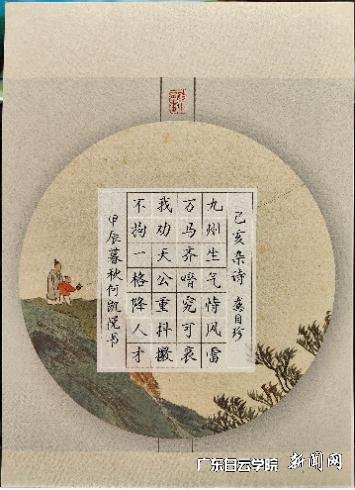 己亥杂诗 龚自珍
九州生气恃风雷
万马齐喑究可哀
我劝天公重抖擞
不拘一格降人才
甲辰暮秋何凯悦书
广东白云学院 新闻网